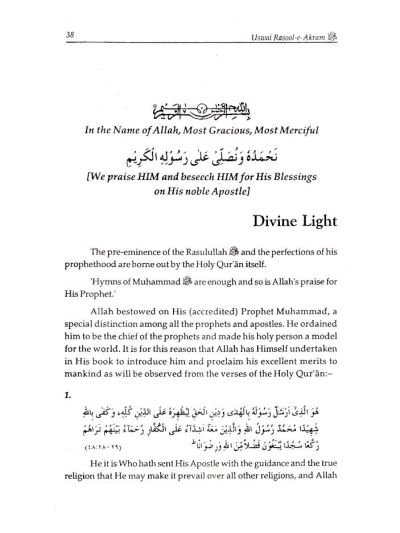 38
Uswai Rasool-e-Akram ﷺ
بِسْمِ اللّٰهِ الرَّحْمٰنِ الرَّحِيْمِ
In the Name of Allah, Most Gracious, Most Merciful
نَحْمَدُهٗ وَنُصَلِّىْ عَلٰى رَسُوْلِهِ الْكَرِيْمِ
[We praise HIM and beseech HIM for His Blessings
on His noble Apostle]
Divine Light
The pre-eminence of the Rasulullah ﷺ and the perfections of his
prophethood are borne out by the Holy Qur'ān itself.
'Hymns of Muhammad ﷺ are enough and so is Allah's praise for
His Prophet.'
Allah bestowed on His (accredited) Prophet Muhammad, a
special distinction among all the prophets and apostles. He ordained
him to be the chief of the prophets and made his holy person a model
for the world. It is for this reason that Allah has Himself undertaken
in His book to introduce him and proclaim his excellent merits to
mankind as will be observed from the verses of the Holy Qur'ān:–
1.
هُوَ الَّذِىْٓ اَرْسَلَ رَسُوْلَهٗ بِالْهُدٰى وَدِيْنِ الْحَقِّ لِيُظْهِرَهٗ عَلَى الدِّيْنِ كُلِّهٖ ۭ وَكَفٰى بِاللّٰهِ
شَهِيْدًا مُحَمَّدٌ رَّسُوْلُ اللّٰهِ وَالَّذِيْنَ مَعَهٗٓ اَشِدَّآءُ عَلَى الْكُفَّارِ رُحَمَآءُ بَيْنَهُمْ تَرٰهُمْ
رُكَّعًا سُجَّدًا يَّبْتَغُوْنَ فَضْلًا مِّنَ اللّٰهِ وَرِضْوَانًا ؕ (٤٨:٢٨-٢٩)
He it is Who hath sent His Apostle with the guidance and the true
religion that He may make it prevail over all other religions, and Allah